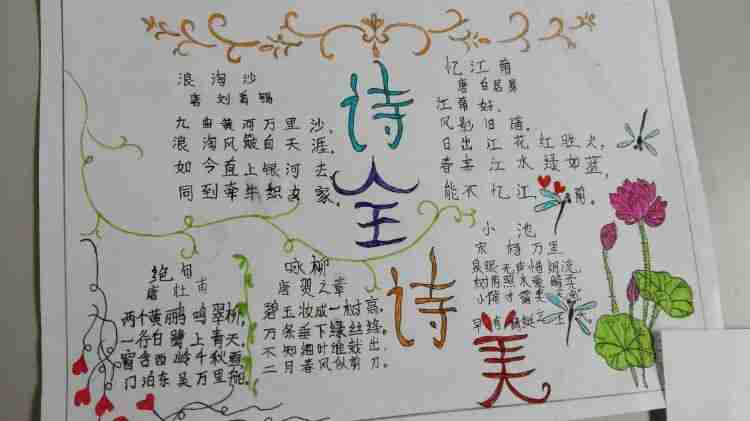 浪淘沙
唐 刘禹锡
九曲黄河万里沙,
浪淘风簸自天涯,
如今直上银河去,
同到牵牛织女家。
诗全诗美
忆江南
唐 白居易
江南好,
风影旧谙,
日出江花红胜火,
春来江水绿如蓝,
能不忆江南。
绝句
唐 杜甫
两个黄鹂鸣翠柳,
一行白鹭上青天,
窗含西岭千秋雪
门泊东吴万里船。
咏柳
唐 贺之章
碧玉妆成一树高,
万条垂下绿丝绦,
不知细叶谁裁出,
二月春风似剪刀。
小池
宋 杨万里
泉眼无声惜细流
树阴照水爱晴柔
小荷才露尖
早有蜻蜓立上头